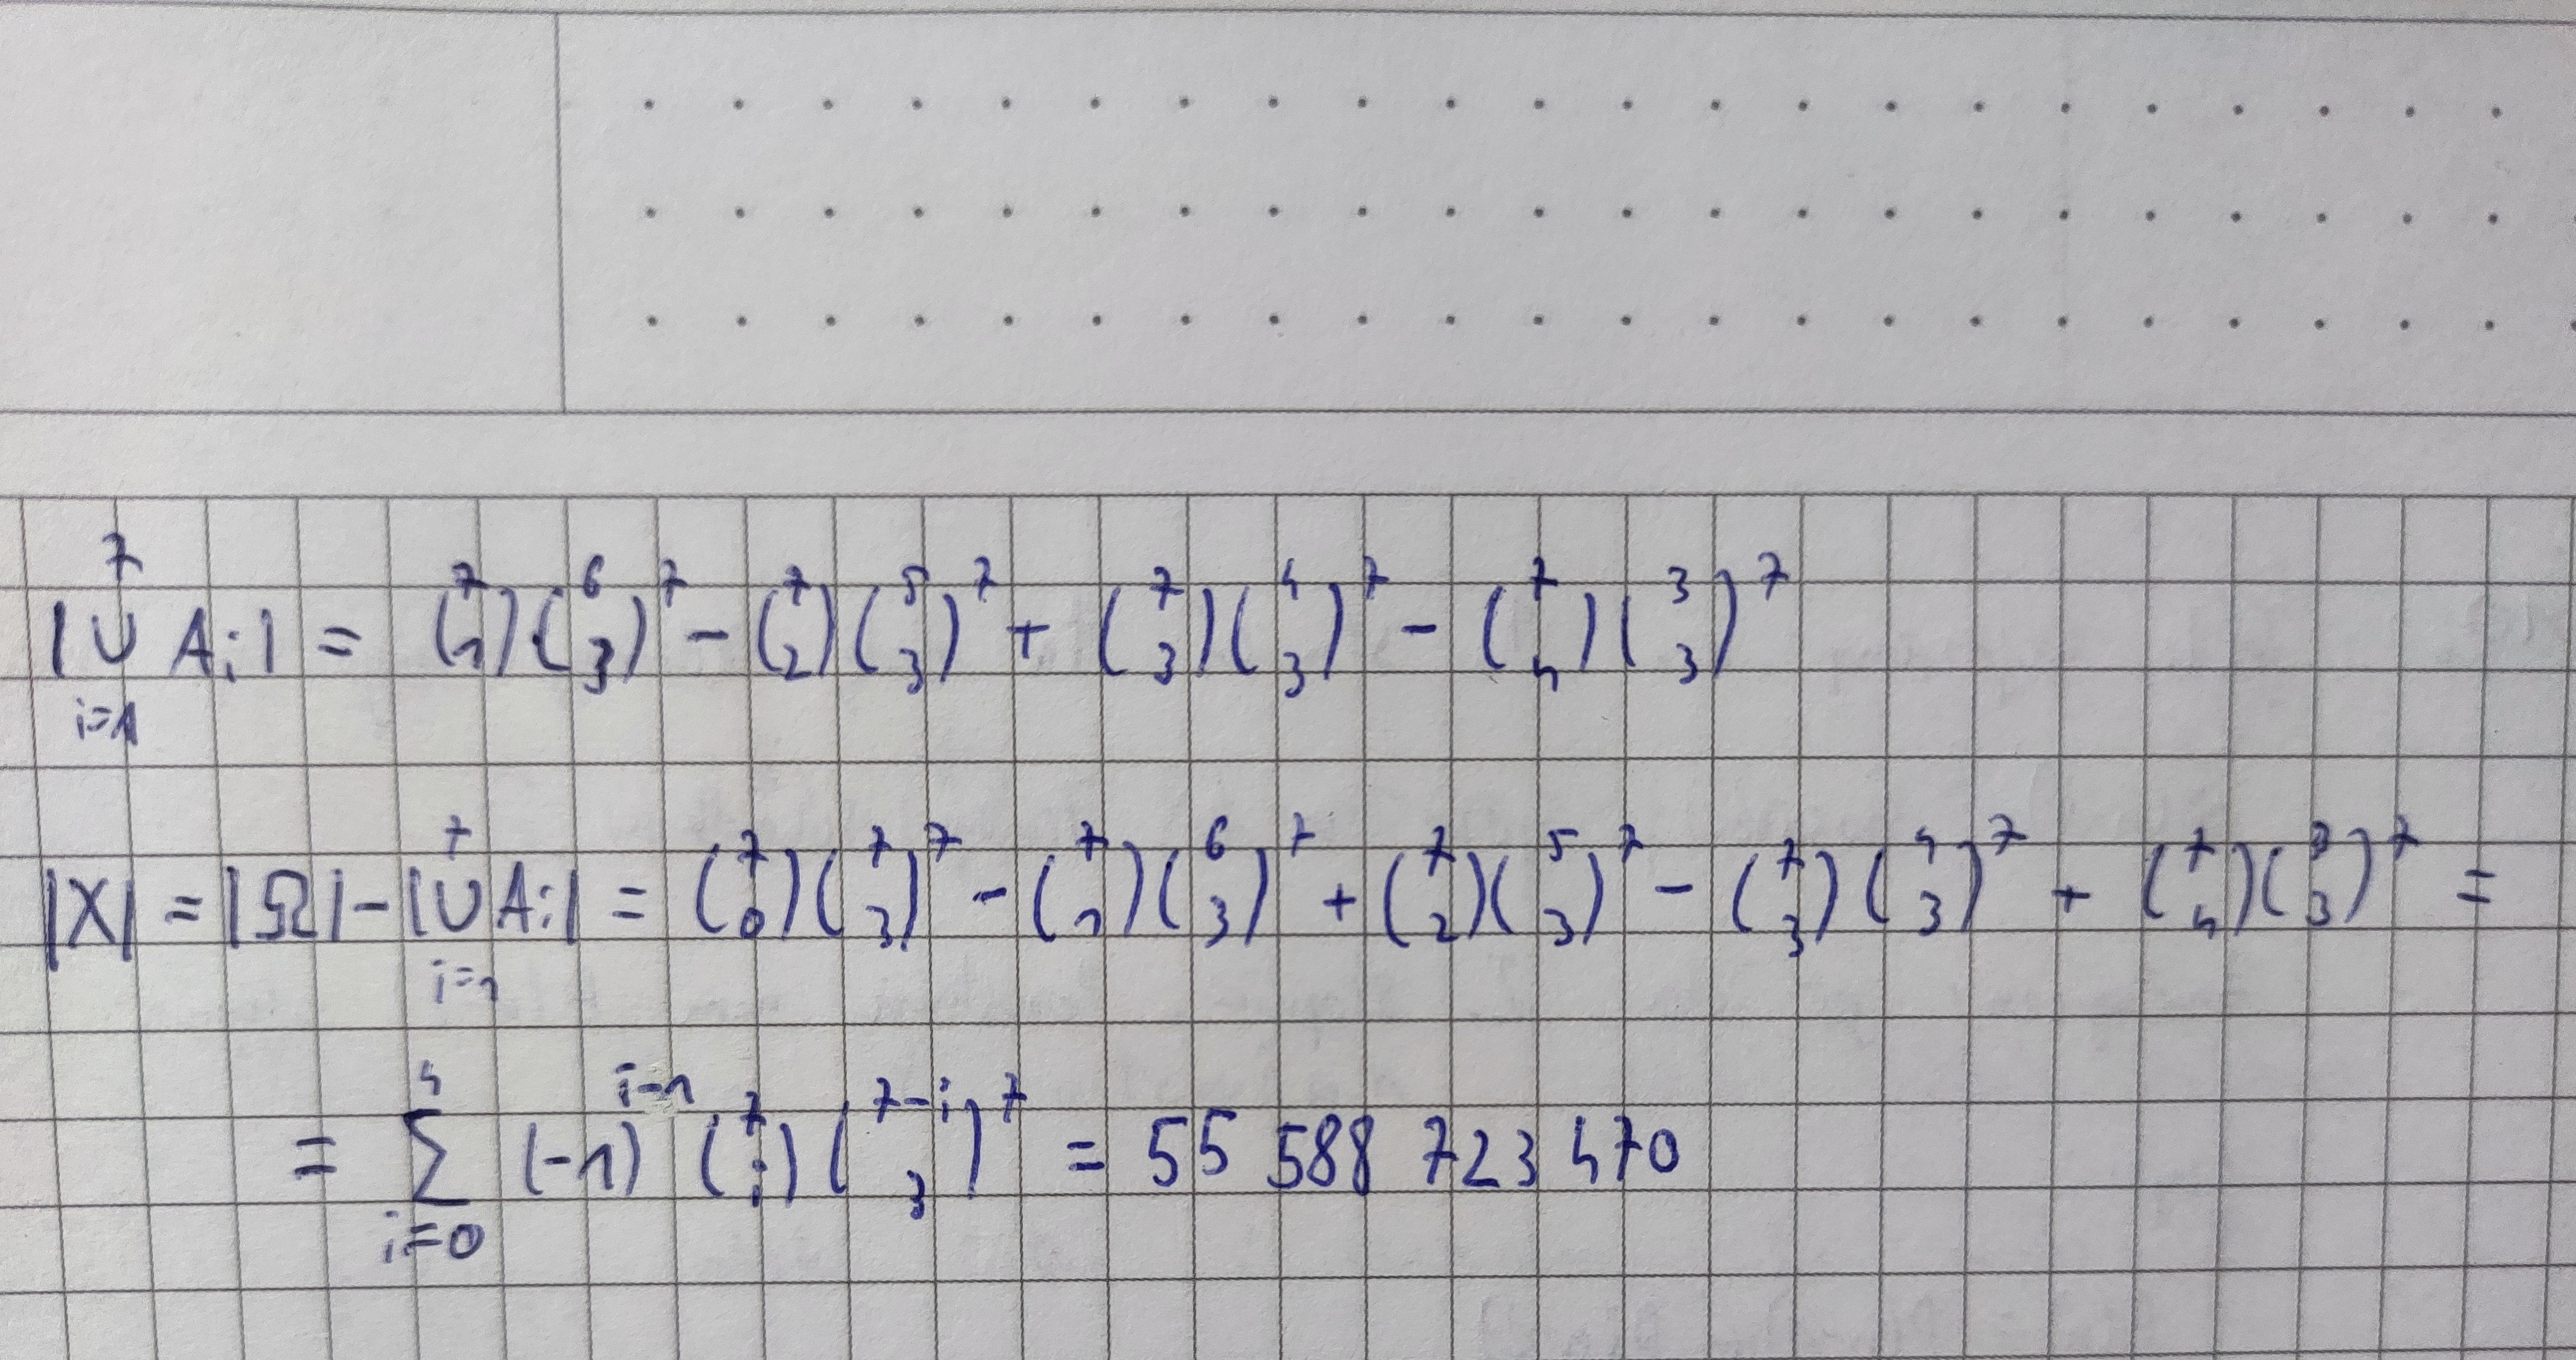 |⋃_{i=1}^{7} A_i| = (7 1)·(6 3)^7 − (7 2)(5 3)^7 + (7 3)(4 3)^7 − (7 4)(3 3)^7
|X| = |Ω| − |⋃_{i=1}^{7} A_i| = (7 0)(7 3)^7 − (7 1)(6 3)^7 + (7 2)(5 3)^7 − (7 3)(4 3)^7 + (7 4)(3 3)^7 =
= ∑_{i=0}^{4} (−1)^{i−1} (7 i)(7−i 3)^7 = 55 588 723 470